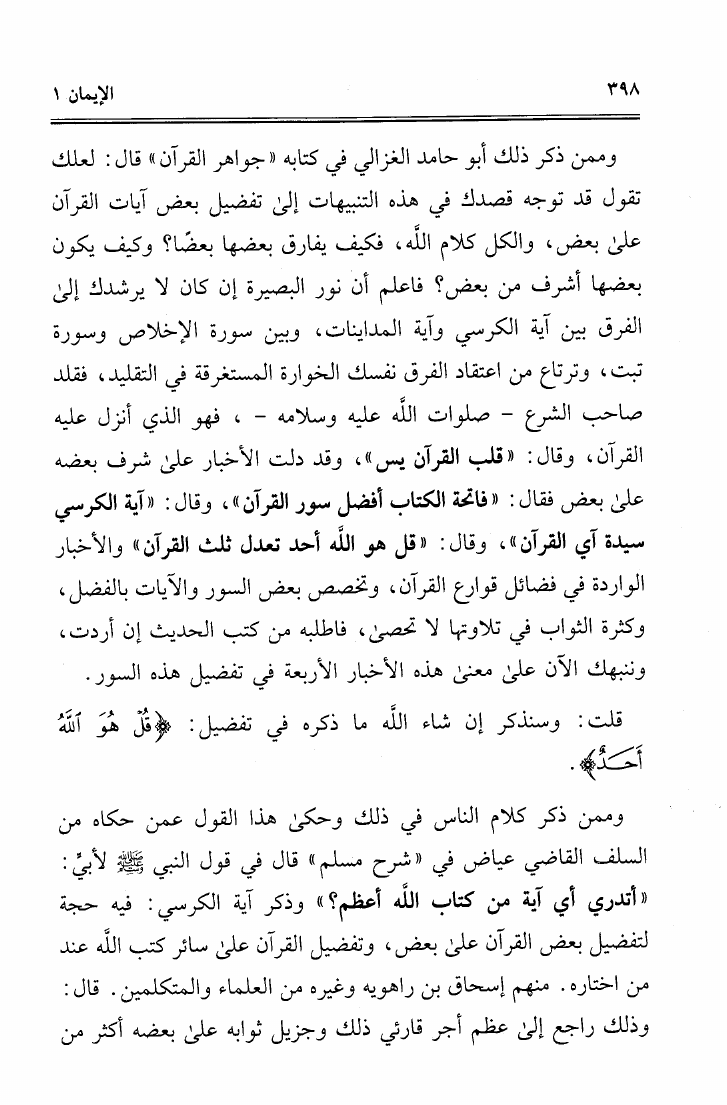 ٣٩٨ الإيمان ١
وممن ذكر ذلك أبو حامد الغزالي في كتابه «جواهر القرآن» قال: لعلك
تقول قد توجه قصدك في هذه التنبيهات إلىٰ تفضيل بعض آيات القرآن
علىٰ بعض، والكل كلام اللَّه، فكيف يفارق بعضها بعضًا؟ وكيف يكون
بعضها أشرف من بعض؟ فاعلم أن نور البصيرة إن كان لا يرشدك إلىٰ
الفرق بين آية الكرسي وآية المداينات، وبين سورة الإخلاص وسورة
تبت، وترتاع من اعتقاد الفرق نفسك الخوارة المستغرقة في التقليد، فقلد
صاحب الشرع - صلوات اللَّه عليه وسلامه - ، فهو الذي أنزل عليه
القرآن، وقال: «قلب القرآن يس»، وقد دلت الأخبار علىٰ شرف بعضه
علىٰ بعض فقال: «فاتحة الكتاب أفضل سور القرآن»، وقال: «آية الكرسي
سيدة آي القرآن»، وقال: «قل هو اللَّه أحد تعدل ثلث القرآن» والأخبار
الواردة في فضائل قوارع القرآن، وتخصص بعض السور والآيات بالفضل،
وكثرة الثواب في تلاوتها لا تحصىٰ، فاطلبه من كتب الحديث إن أردت،
وننبهك الآن علىٰ معنىٰ هذه الأخبار الأربعة في تفضيل هذه السور.
قلت: وسنذكر إن شاء اللَّه ما ذكره في تفضيل: ﴿قُلْ هُوَ ٱللَّهُ
أَحَـدٌ﴾.
وممن ذكر كلام الناس في ذلك وحكىٰ هذا القول عمن حكاه من
السلف القاضي عياض في «شرح مسلم» قال في قول النبي ﷺ لأبيٍّ:
«أتدري أي آية من كتاب اللَّه أعظم؟» وذكر آية الكرسي: فيه حجة
لتفضيل بعض القرآن علىٰ بعض، وتفضيل القرآن علىٰ سائر كتب اللَّه عند
من اختاره. منهم إسحاق بن راهويه وغيره من العلماء والمتكلمين. قال:
وذلك راجع إلىٰ عظم أجر قارئي ذلك وجزيل ثوابه علىٰ بعضه أكثر من